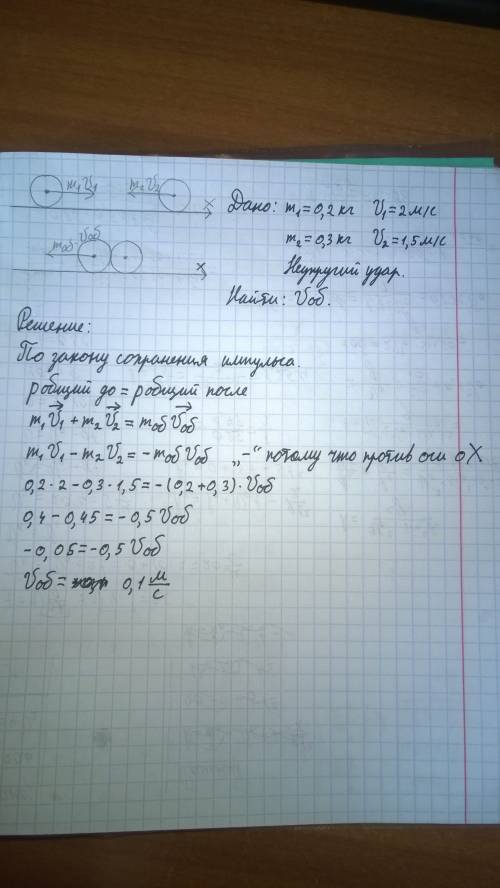 m₁V₁ m₂V₂ X
mоб Vоб X
Дано: m₁ = 0,2 кг V₁ = 2 м/с
m₂ = 0,3 кг V₂ = 1,5 м/с
Неупругий удар.
Найти: Vоб.
Решение:
По закону сохранения импульса.
p общий до = p общий после
m₁V⃗₁ + m₂V⃗₂ = mоб V⃗об
m₁V₁ - m₂V₂ = -mоб Vоб „-“ потому что против оси оХ
0,2 · 2 - 0,3 · 1,5 = -(0,2+0,3) · Vоб
0,4 - 0,45 = -0,5 Vоб
-0,05 = -0,5 Vоб
Vоб = 0,1 м/с